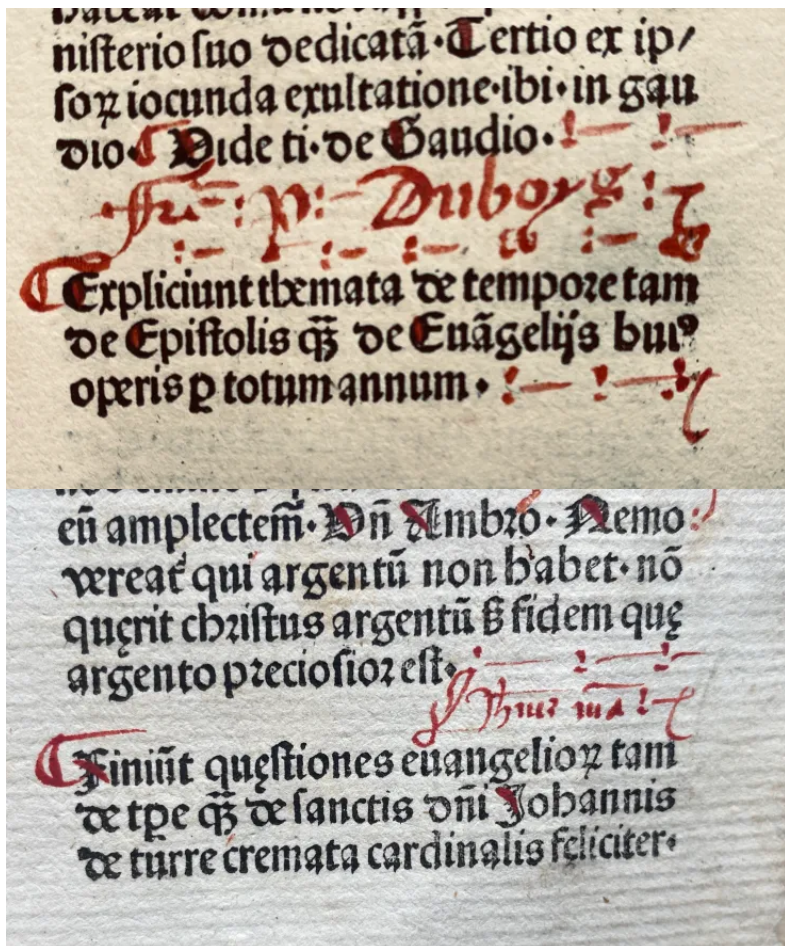 nisterio suo dedicatã·Tertio ex ip/
soꝝ iocunda exultatione·ibi·in gau
dio· Vide ti·de Gaudio·
p: Duboys
Expliciunt themata de tempore tam
de Epistolis qꝫ̃ de Euãgelijs huiꝰ
operis ꝑ totum annum·
eũ amplectem̃· Vñ Ambro· Nemo
vereat᷑ qui argentũ non habet· nõ
quęrit christus argentũ sꝫ fidem quę
argento preciosior est·
Finiũt quęstiones euangelioꝝ tam
de tꝑe qꝫ̃ de sanctis dñi Johannis
de turre cremata cardinalis feliciter·